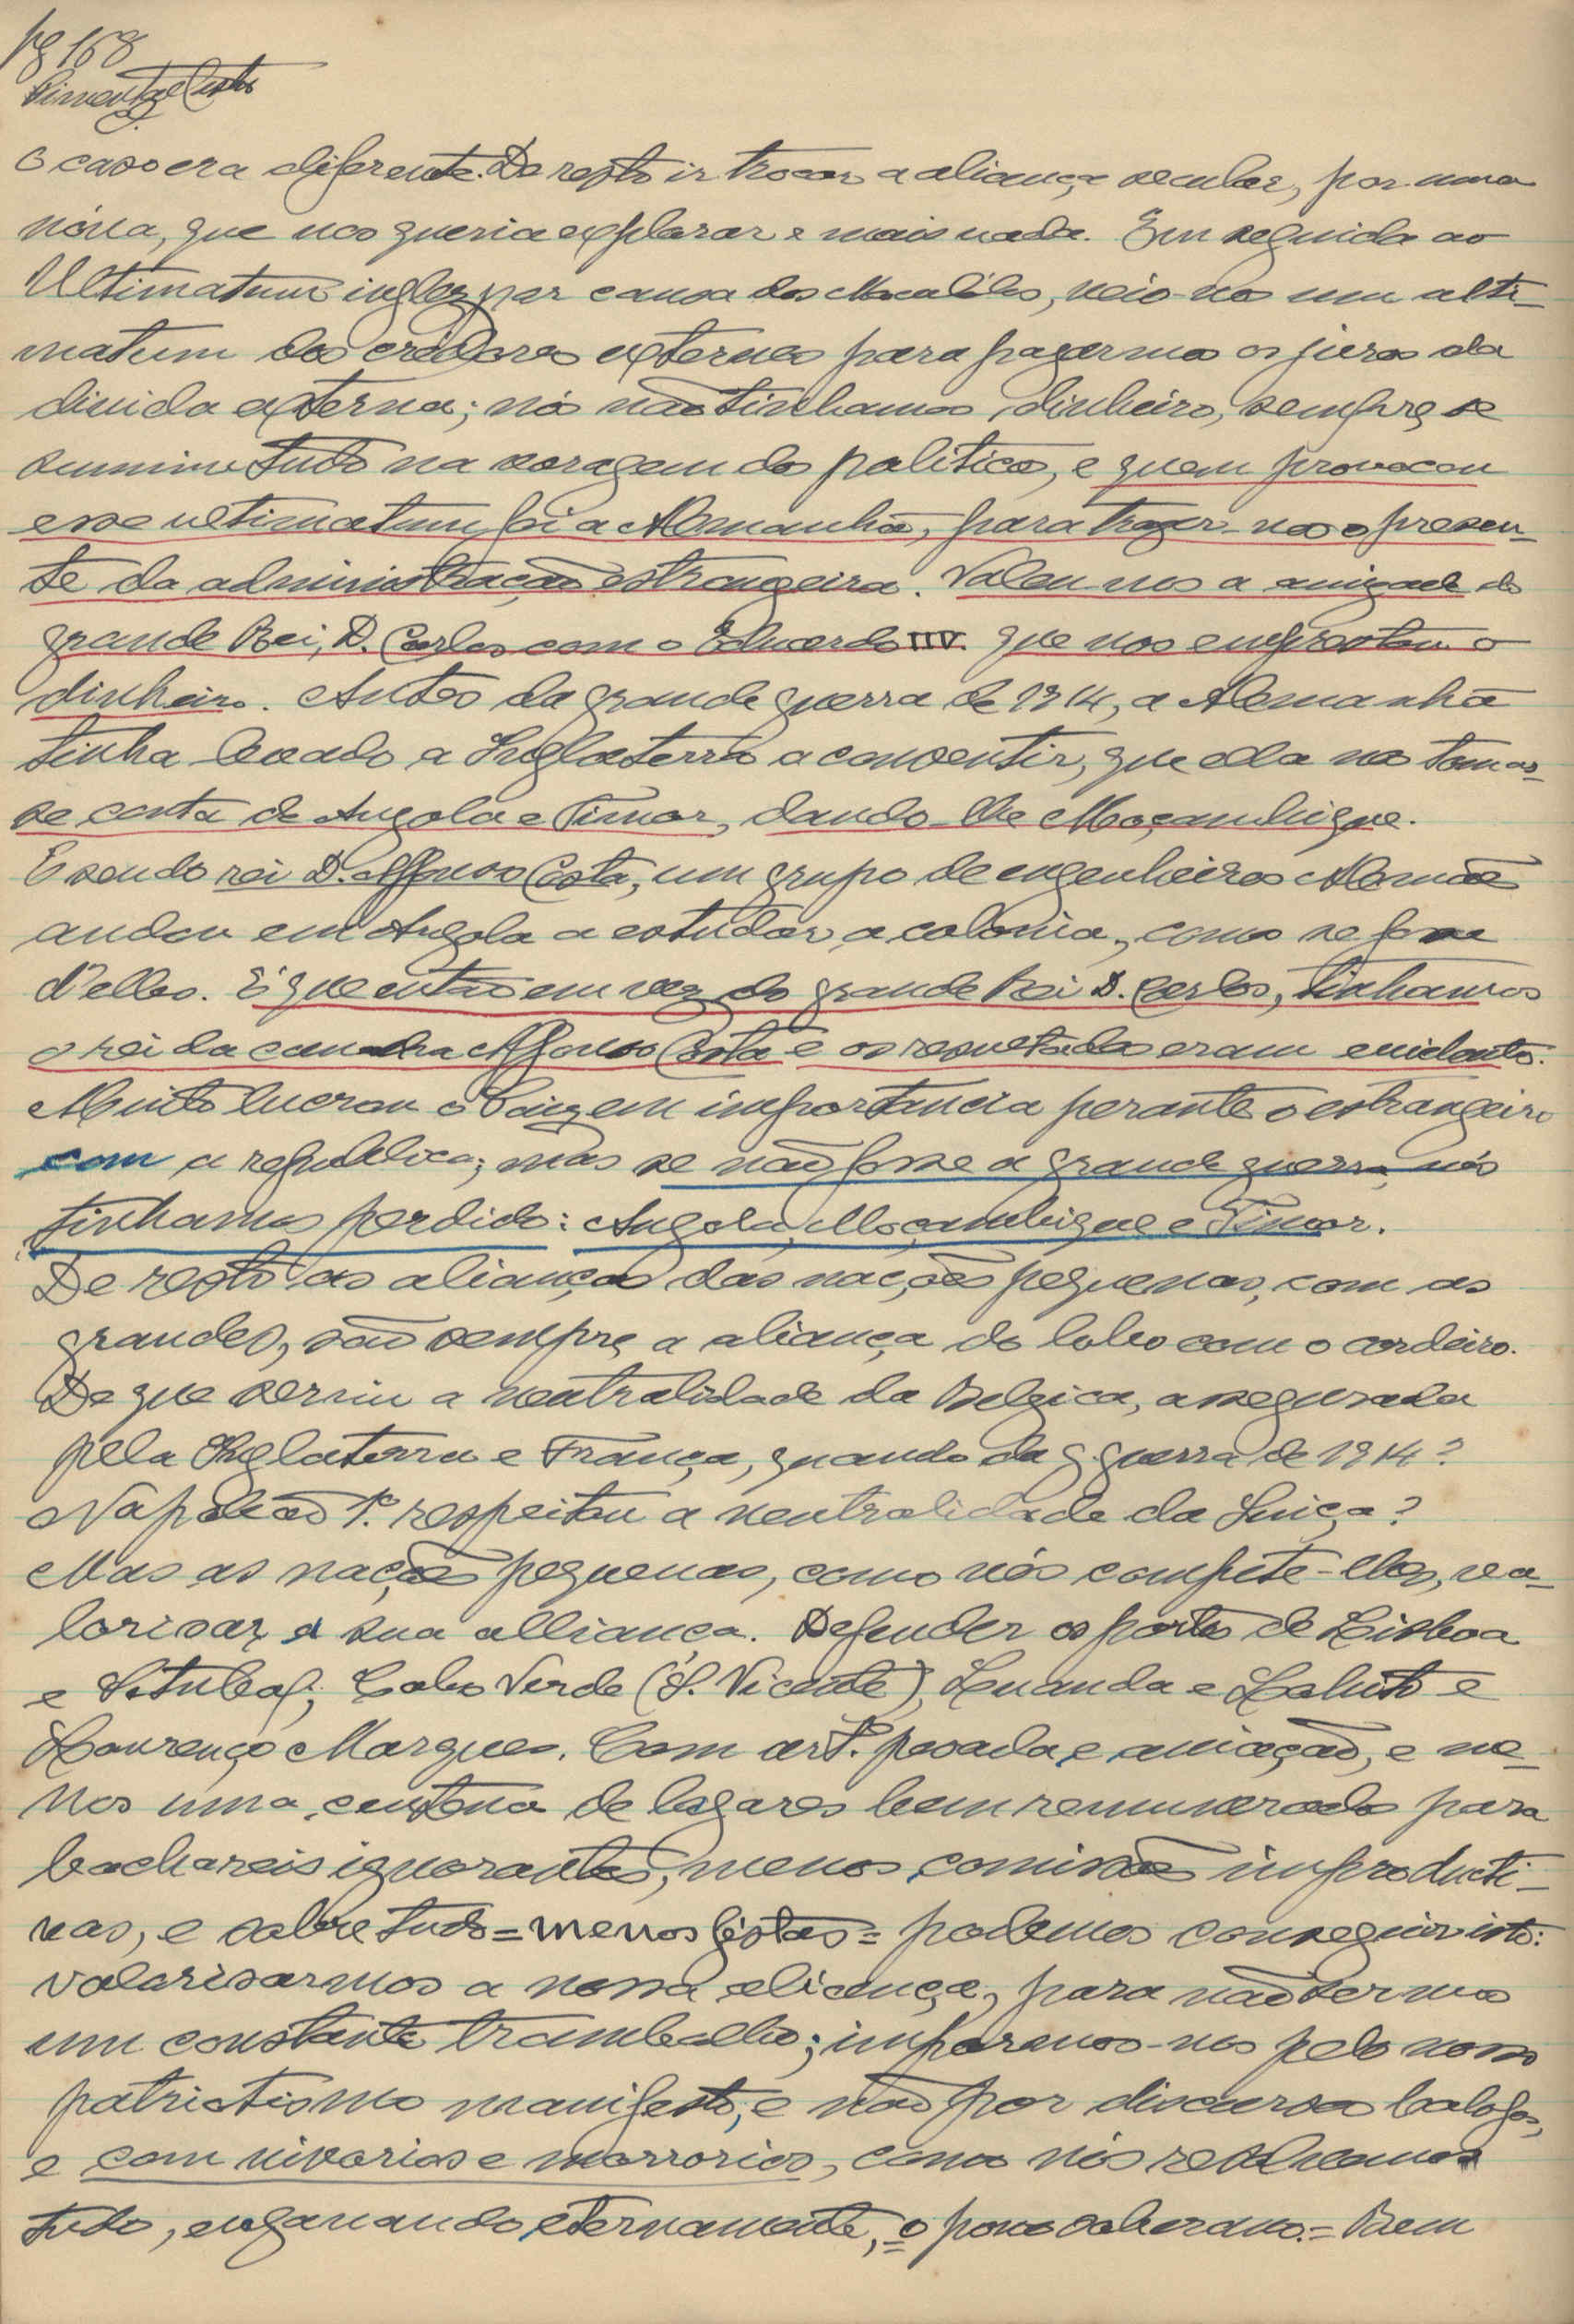 pg 168
Pimenta de Castro
O caso era diferente. De resto ir trocar a aliança secular, por uma
nóva, que nos queria explorar e mais nada. Em seguida ao
Ultimatum inglez por causa dos Macalólos, veio-nos um alti-
matum dos crèdores externos para pagarmos os juros da
divida externa; nós não tinhamos dinheiro, sempre se
sumiu tudo na voragem do politico, e quem provocou
esse ultimatum foi a Alemanhã, para trazer-nos o presen-
te da administração estrangeira. Valeu-nos a amizade do
grande Rei, D. Carlos com o Eduardo que nos emprestou o
dinheiro. Antes da grande guerra de 1914, a Alemanhã
tinha levado a Inglaterra a consentir, que ella nos tomas-
se conta de Angola e Timor, dando-lhe Moçambique.
E sendo rei D. Affonso Costa, um grupo de engenheiros Alemães
andou em Angola a estudar, a colonia, como se fosse
d'elles. E' que então em vez do grande Rei D. Carlos, tinhamos
o rei da canalha Affonso Costa e os resultados eram evidentes.
Muito lucrou o Paiz em importancia perante o estrangeiro
com a republica; mas se não fosse a grande guerra, nós
tinhamos perdido: Angola, Moçambique e Timor.
De resto as alianças das nações pequenas, com as
grandes, são sempre a aliança do lobo com o cordeiro.
De que serviu a neutralidade da Belgica, assegurada
pela Inglaterra e França, quando da g. guerra de 1914?
Napoleão 1º. respeitou a neutralidade da Suiça?
Mas as nações pequenas, como nós compete-lhes, va-
lorisar a sua alliança. Defender os portos de Lisboa
e Setubal; Cabo Verde (S. Vicente), Luanda e Lobito e
Lourenço Marques. Com artª. pesada e aviação, e me-
nos uma centena de logares bem remunerados para
bachareis ignorantes, menos comissões improducti-
vas, e sobre tudo = menos féstas = podemos conseguir isto:
valorisarmos a nossa aliança, para não termos
um constante trambolho; impormos-nos pelo nosso
patriotismo manifesto, e não por discursos balofos,
e com vivorios e morrorios, como nós resolvemos
tudo, enganando eternamente, o povo soberano. = Bem